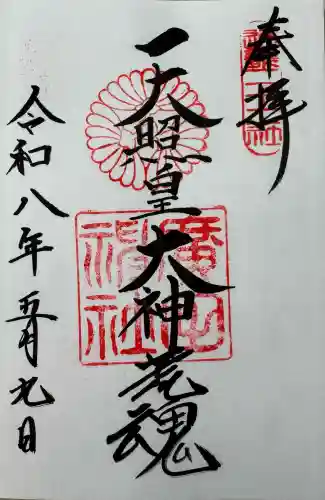 奉拝
天照皇大神荒魂
廣田
神社
令和八年五月九日